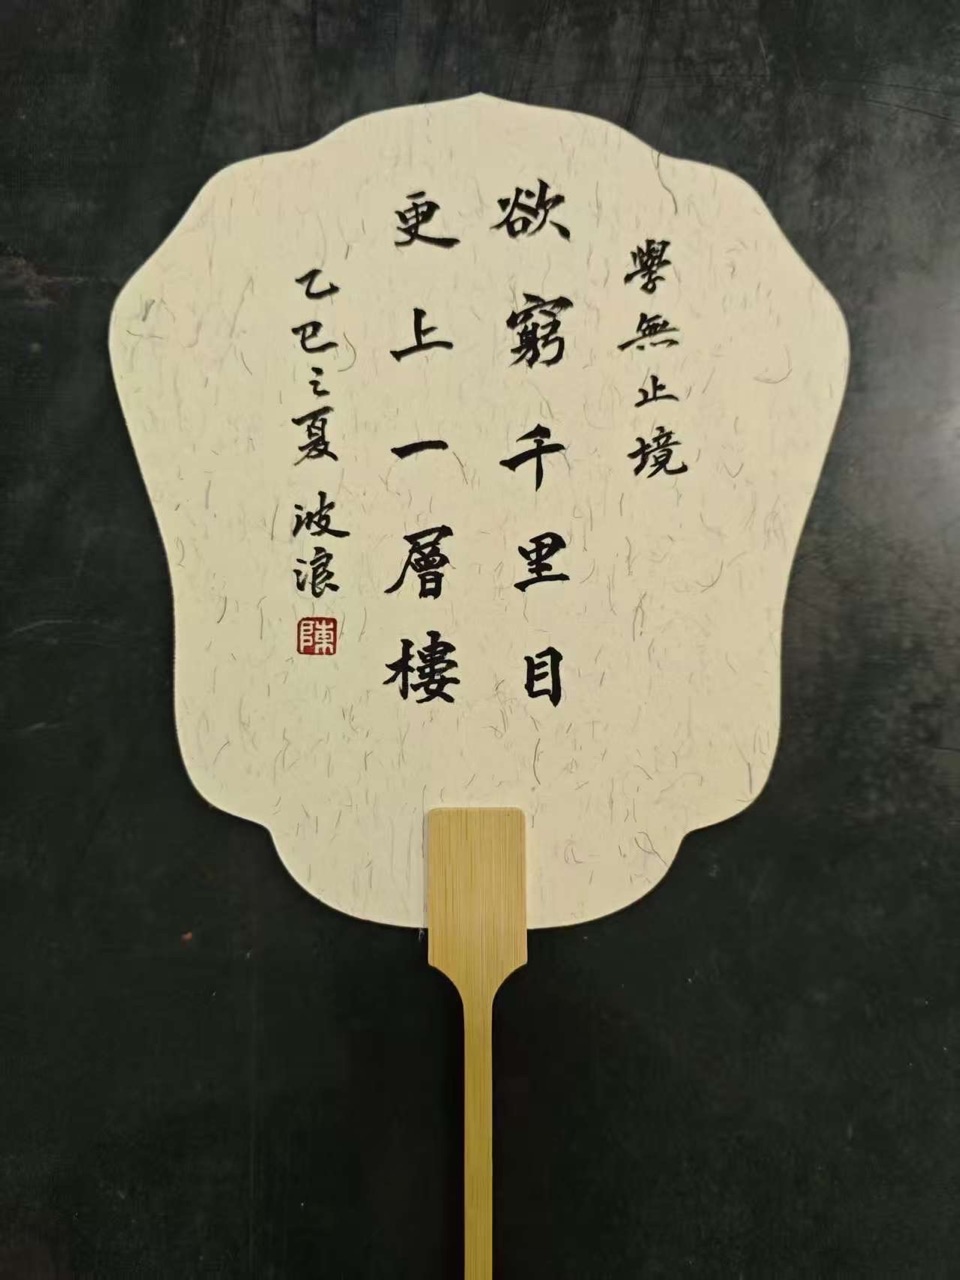 學無止境
欲窮千里目
更上一層樓
乙巳之夏 波浪
陳